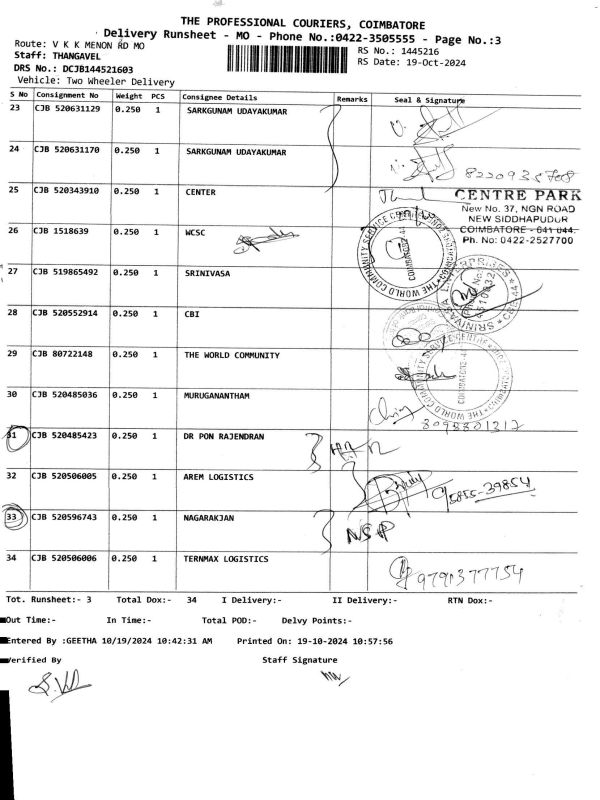 THE PROFESSIONAL COURIERS, COIMBATORE
Delivery Runsheet - MO - Phone No.:0422-3505555 - Page No.:3
Route: V K K MENON RD MO
RS No.: 1445216
Staff: THANGAVEL
RS Date: 19-Oct-2024
DRS No.: DCJB144521603
Vehicle: Two Wheeler Delivery
S No Consignment No Weight PCS Consignee Details Remarks Seal & Signature
23 CJB 520631129 0.250 1 SARKGUNAM UDAYAKUMAR
24 CJB 520631170 0.250 1 SARKGUNAM UDAYAKUMAR
25 CJB 520343910 0.250 1 CENTER
CENTRE PARK
New No. 37, NGN ROAD
NEW SIDDHAPUDUR
COIMBATORE - 641 044.
Ph. No: 0422-2527700
26 CJB 1518639 0.250 1 WCSC
THE WORLD COMMUNITY SERVICE CENTRE
COIMBATORE-44
27 CJB 519865492 0.250 1 SRINIVASA
28 CJB 520552914 0.250 1 CBI
29 CJB 80722148 0.250 1 THE WORLD COMMUNITY
30 CJB 520485036 0.250 1 MURUGANANTHAM
8098801317
31 CJB 520485423 0.250 1 DR PON RAJENDRAN
32 CJB 520506005 0.250 1 AREM LOGISTICS
33 CJB 520596743 0.250 1 NAGARAKJAN
NSP
34 CJB 520506006 0.250 1 TERNMAX LOGISTICS
9791377754
Tot. Runsheet:- 3 Total Dox:- 34 I Delivery:- II Delivery:- RTN Dox:-
Out Time:- In Time:- Total POD:- Delvy Points:-
Entered By :GEETHA 10/19/2024 10:42:31 AM Printed On: 19-10-2024 10:57:56
Verified By Staff Signature